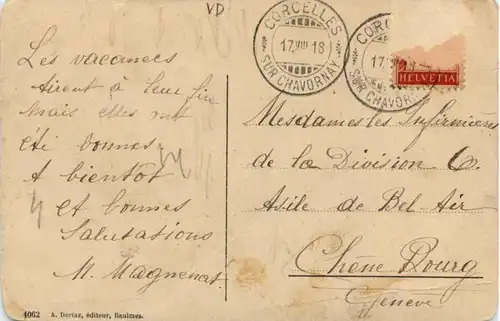 VD
CORCELLES
17.VIII.18
SUR CHAVORNAY
CORC
17.VIII.18
SUR CHAVORNAY
HELVETIA
Les vacances
tirent à leur fin
Mais elles ont
été bonnes.
A bientôt
et bonnes
Salutations
M. Magnenat
Mesdames les Infirmières
de la Division 6.
Asile de Bel-Air
Chêne Bourg
Genève
4062 A. Deriaz, éditeur, Baulmes.